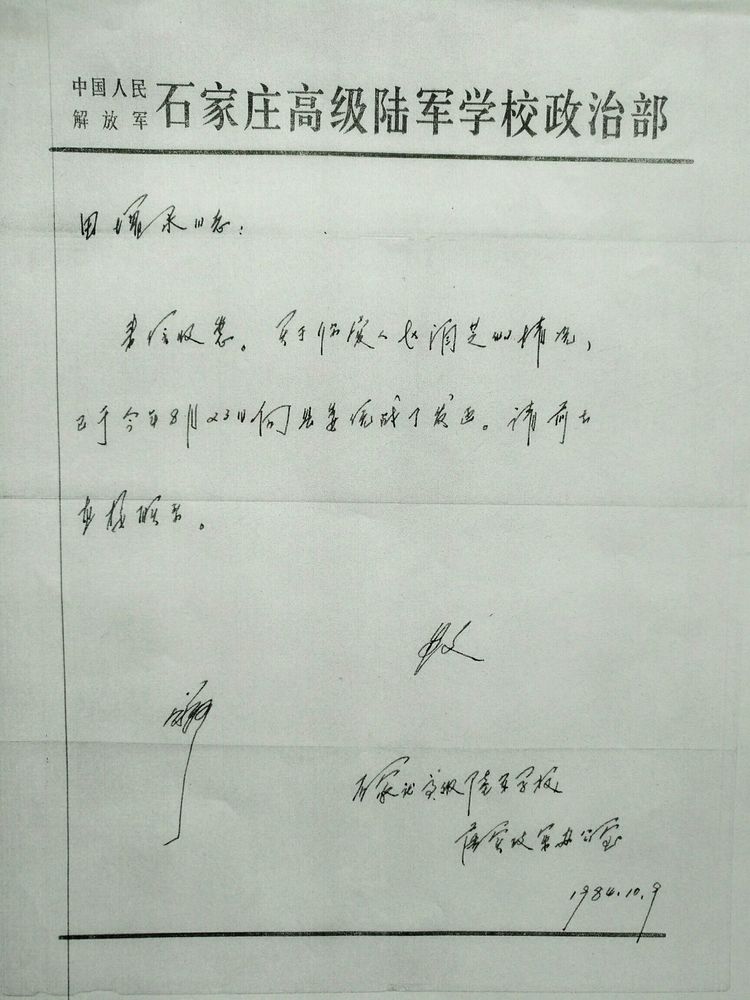 中国人民
解放军
石家庄高级陆军学校政治部
田耀东同志：
来信收悉。关于你爱人赵润芝的情况，
已于今年8月23日向县委统战部发函。请前去
联系。
此致
石家庄高级陆军学校
落实政策办公室
1984.10.9